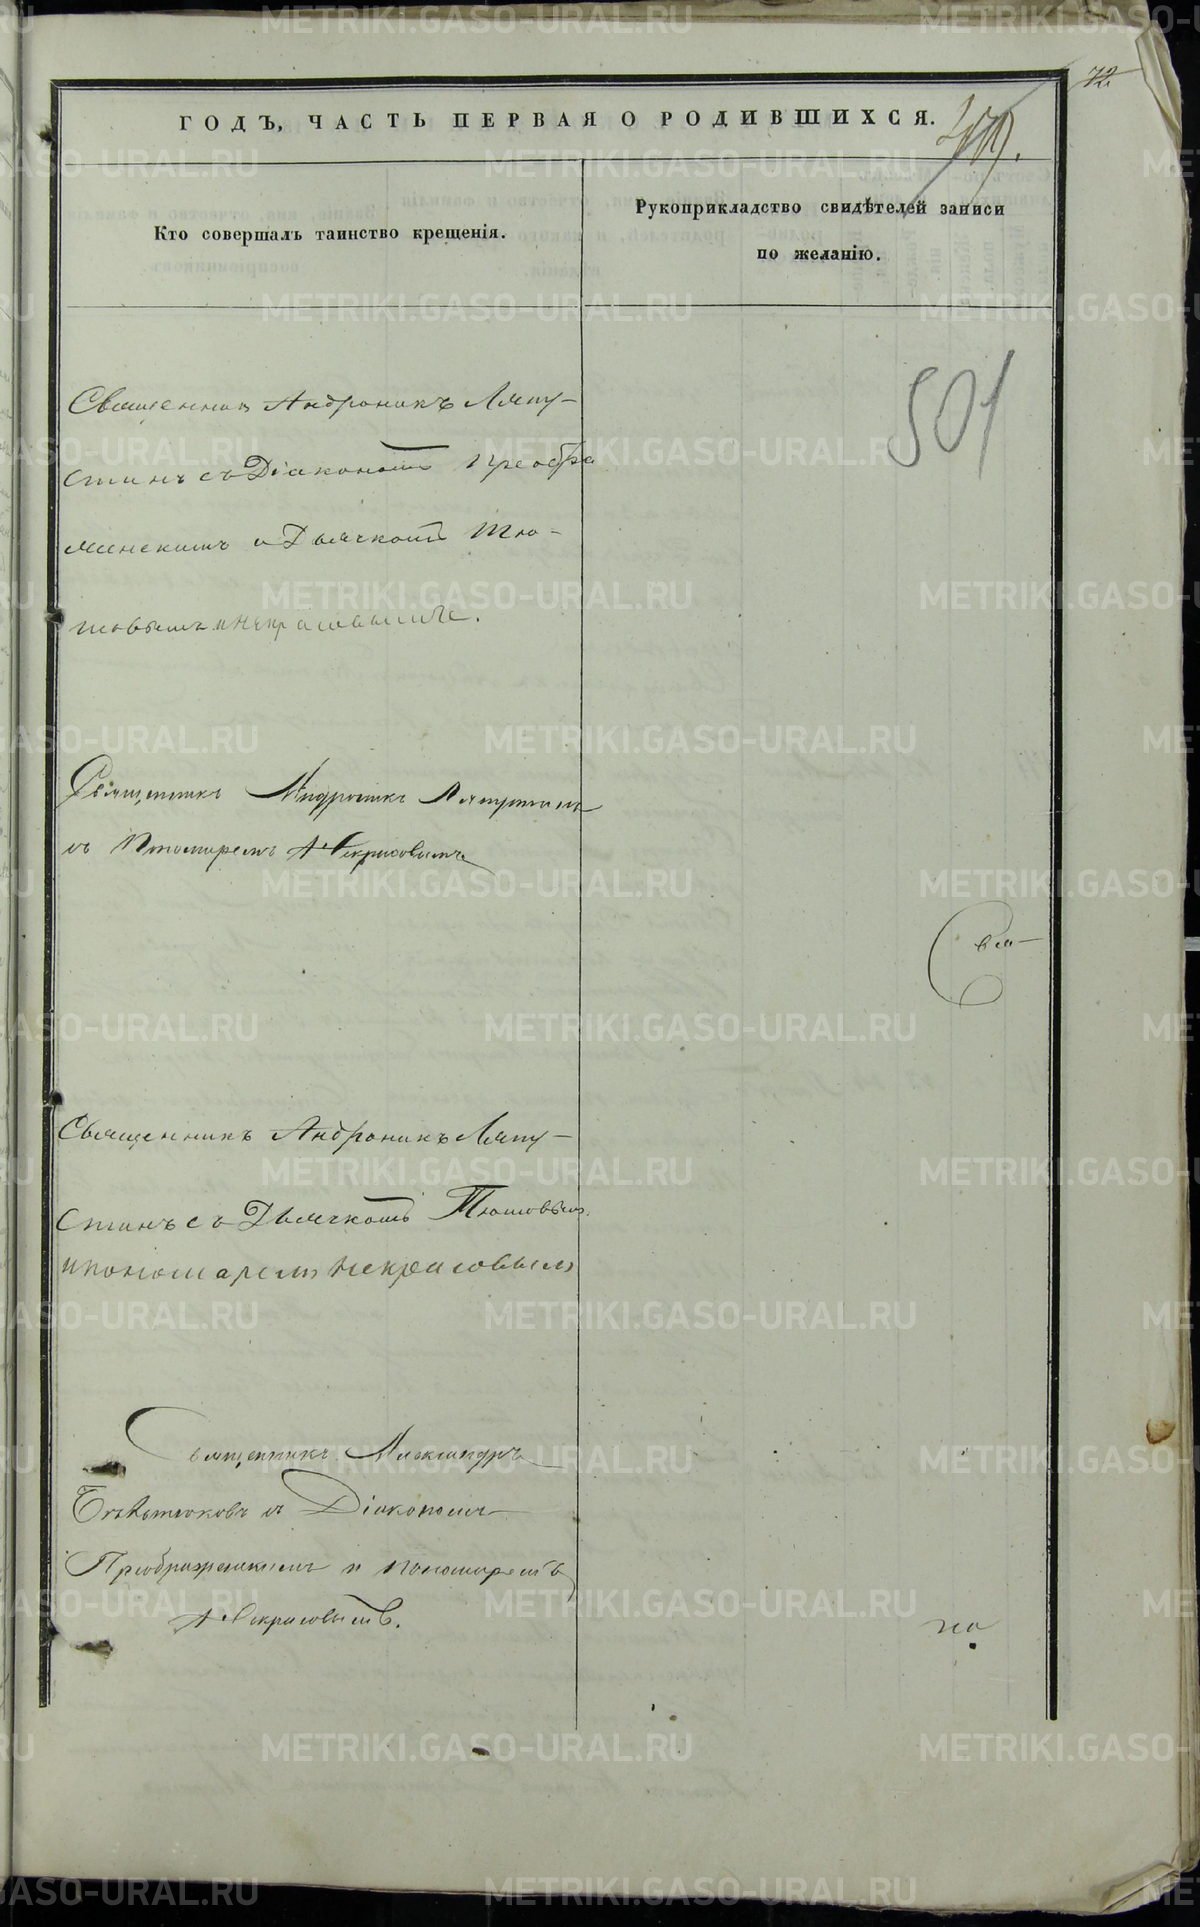 72
ГОДЪ, ЧАСТЬ ПЕРВАЯ О РОДИВШИХСЯ.
Кто совершалъ таинство крещенія.
Рукоприкладство свидѣтелей записи
по желанію.
501
Священникъ Андроникъ Ляпу-
стинъ съ Діакономъ Преобра
женскимъ и Дьячкомъ Тю-
товымъ и Некрасовымъ.
Священникъ Андроникъ Ляпустинъ
съ Пономаремъ Некрасовымъ
Свя-
Священникъ Андроникъ Ляпу-
стинъ съ Дьячкомъ Тютовымъ
и пономаремъ Некрасовымъ
Священникъ Александръ
съ Діакономъ
Преображенскимъ и пономаремъ
Некрасовымъ.
но
METRIKI.GASO-URAL.RU